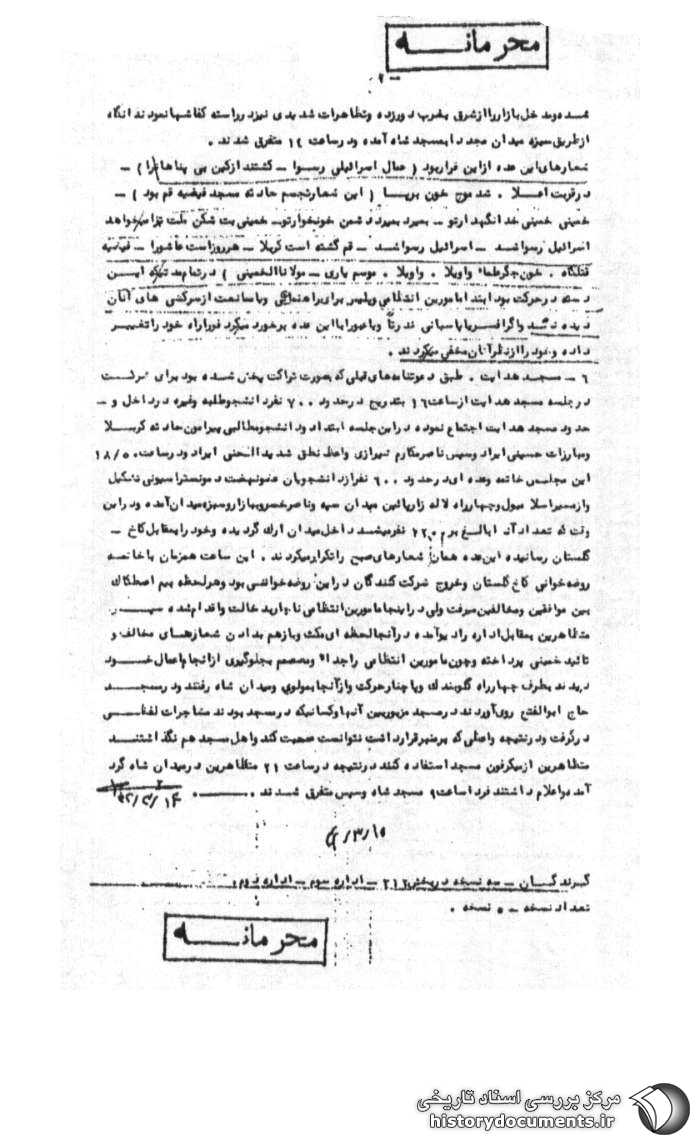 محرمانه
- ۲ -
شده ومدخل بازار را از شرق بغرب دور زده و تظاهرات شدیدی نیز در راسته کفاشها نمودند آنگاه
از طریق سبزه میدان مجدد ا بمسجد شاه آمده و در ساعت ۱۴ متفرق شدند .
شعارهای این عده از این قرار بود ( عمال اسرائیلی رسوا - کشتند از کین بی پناهانرا ) -
در قربت اعلا . شد موج خون بر پا ( این شعار تجسم حادثه مسجد فیضیه قم بود ) -
خمینی خمینی خدا نگهدار تو - بمیرد بمیرد دشمن خونخوار تو - خمینی بت شکن ملت ترا میخواهد
اسرائیل رسوا شد - اسرائیل رسوا شد - قم گشته است کربلا - هر روز است عاشورا - فیضیه
قتلگاه . خون جگر علما واویلا . واویلا . موسم یاری - مولانا الخمینی ) در تمام مدتیکه این
دسته در حرکت بودابند ا مامورین انتظامی و پلیس برای راهنمائی و یا ممانعت از سرکشی های آنان
دیده نشد و اگر افسر یا پاسبانی ندرتاً و یا عبورا با این عده برخورد میکرد فورا راه خود را تغییر
داده و خود را از نظر آنان مخفی میکردند .
۶ - مسجد هدایت . طبق دعوتنامه های قبلی که بصورت تراکت پخش شده بود برای شرکت
در جلسه مسجد هدایت از ساعت ۱۶ بتدریج در حدود ۷۰۰ نفر دانشجو طلبه و غیره در داخل و -
حدود مسجد هدایت اجتماع نموده در این جلسه ابتدا دو دانشجو مطالبی پیرامون حادثه کربلا
و مبارزات حسینی ایراد و سپس ناصر مکارم شیرازی واعظ نطق شدید اللحنی ایراد و در ساعت ۱۸/۵۰
این مجلس خاتمه وعده ای در حدود ۶۰۰ نفر از دانشجویان عضو نهضت دمونستراسیونی تشکیل
و از مسیر اسلامبول و چهارراه لاله زار پائین میدان سپه و ناصر خسرو و بازار و سبزه میدان آمده و در این
وقت که تعداد آنها بالغ بر ۱۲۰۰ نفر میشد داخل میدان ارک گردیده و خود را بمقابل کاخ -
گلستان رسانیده این عده همان شعارهای صبح را تکرار میکردند . این ساعت همزمان با خاتمه
روضه خوانی کاخ گلستان و خروج شرکت کنندگان در این روضه خوانی بود و هر لحظه بیم اصطکاک
بین موافقین و مخالفین میرفت ولی در اینجا مامورین انتظامی ناچار بدخالت و اقدام شده
متظاهرین بمقابل اداره رادیو آمده در آنجا لحظه ای مکث و بازهم بدادن شعارهای مخالف و
تائید خمینی پرداخته و چون مامورین انتظامی را جدا و مصمم بجلوگیری از انجام اعمال خود
دیدند بطرف چهارراه گلوبندک و پاچنار حرکت و از آنجا بمولوی و میدان شاه رفتند و در مسجد
حاج ابوالفتح روی آوردند در مسجد مزبور بین آنها و کسانیکه در مسجد بودند مشاجرات لفظی
در گرفت و در نتیجه واعظی که بر منبر قرار داشت نتوانست صحبت کند و اهل مسجد هم نگذاشتند
متظاهرین از میکرفون مسجد استفاده کنند در نتیجه در ساعت ۲۱ متظاهرین در میدان شاه گرد
آمده و اعلام داشتند فردا ساعت ۹ مسجد شاه و سپس متفرق شدند .
۴۲/۳/۱۴
۱۵/۳/
گیرندگان - سه نسخه در بخش ۲۱۲ - اداره سوم - اداره دوم .
تعداد نسخه - ۵ نسخه .
محرمانه
مرکز بررسی اسناد تاریخی
historydocuments.ir